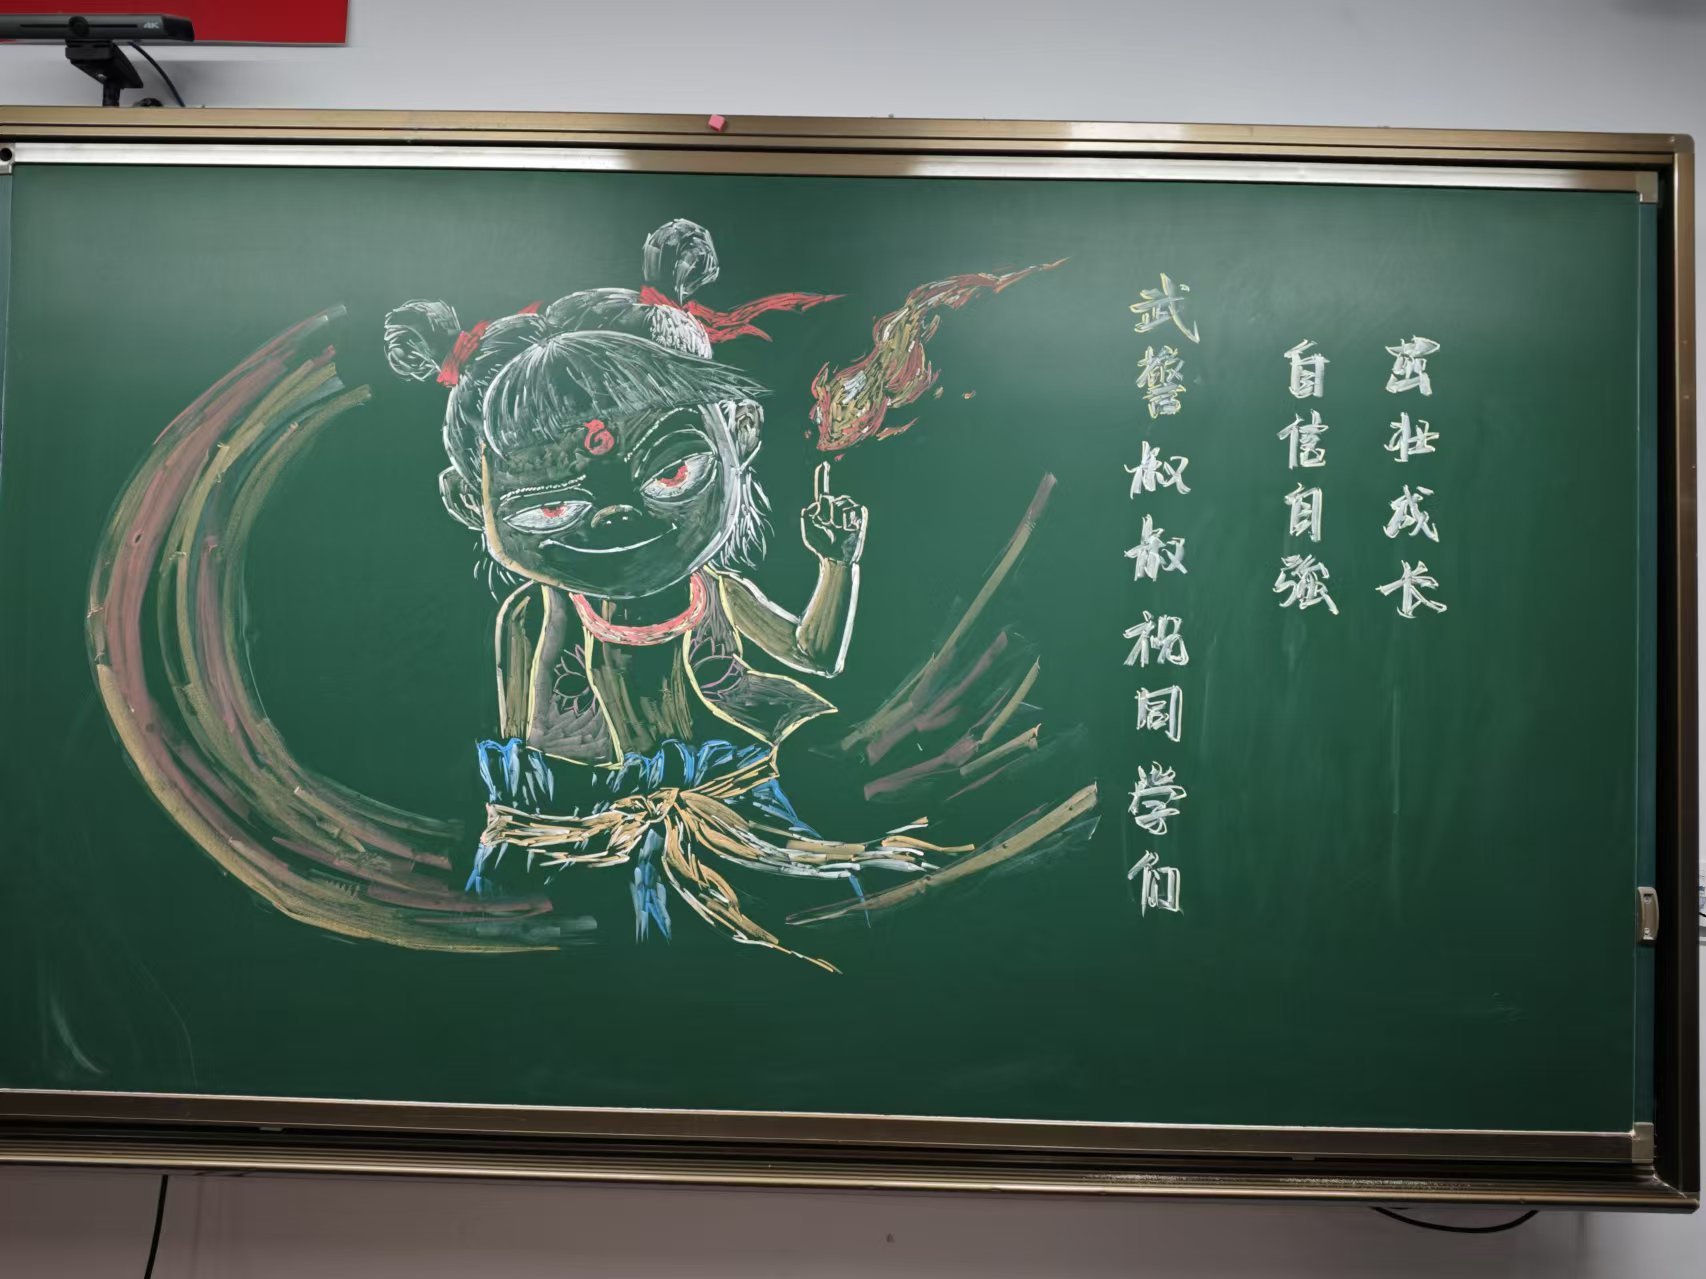 4K
武警叔叔祝同学们
自信自強
茁壮成长